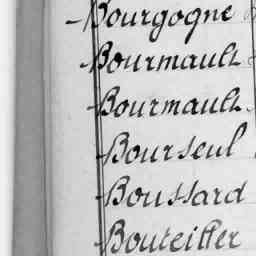 Bourgogne
Bourmault
Bourmault
Bourseul
Boussard
Bouteiller